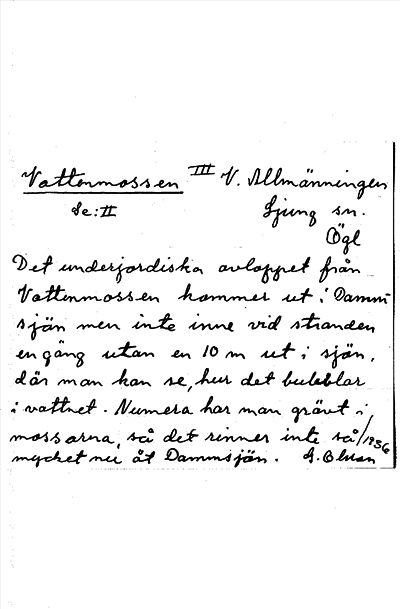 Vattenmossen III V. Allmänningen
Se: II Ljung sn.
Ögl
Det underjordiska avloppet från
Vattenmossen kommer ut i Damm
sjän men inte inne vid stranden
en gång utan en 10 m ut i sjän,
där man kan se, hur det bubblar
i vattnet. Numera har man grävt i
mossarna, så det rinner inte så
mycket nu åt Dammsjän. /1936